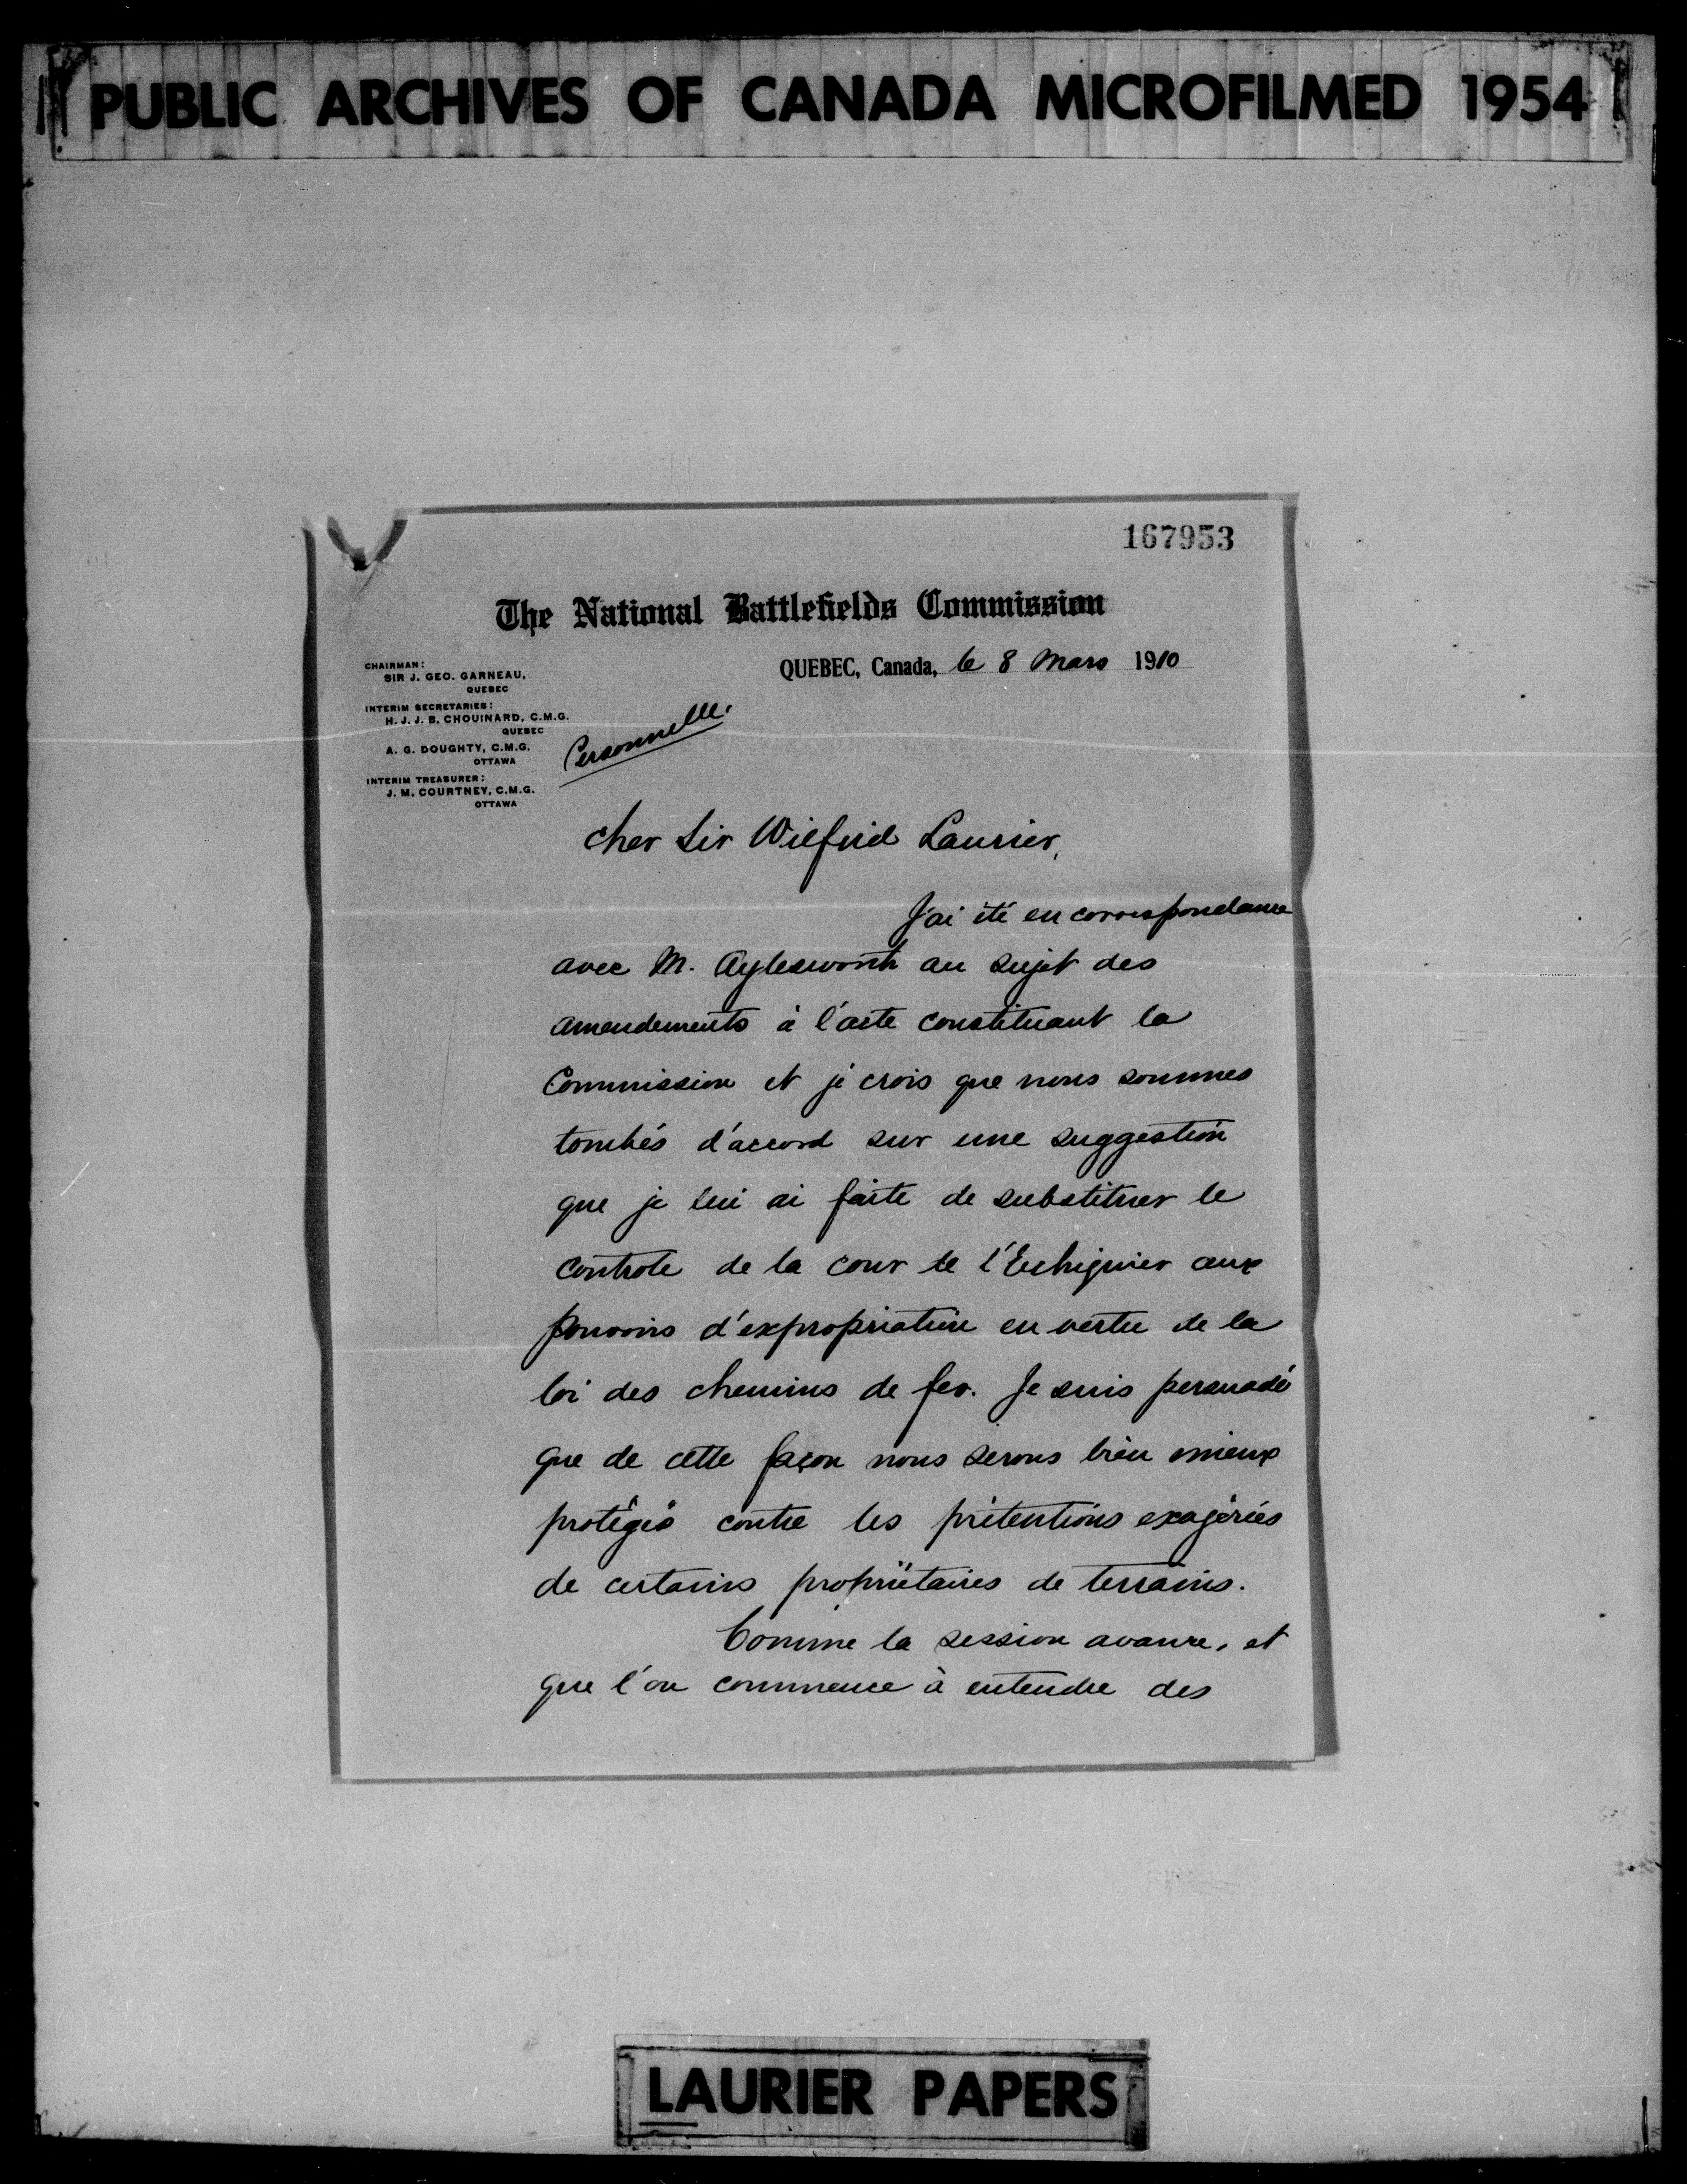 PUBLIC ARCHIVES OF CANADA MICROFILMED 1954
167953
The National Battlefields Commission
QUEBEC, Canada, le 8 Mars 1910
CHAIRMAN:
SIR J. GEO. GARNEAU,
QUEBEC
INTERIM SECRETARIES:
H. J. J. B. CHOUINARD, C.M.G.
QUEBEC
A. G. DOUGHTY, C.M.G.
OTTAWA
INTERIM TREASURER:
J. M. COURTNEY, C.M.G.
OTTAWA
Personnelle.
Cher Sir Wilfrid Laurier,
J'ai été en correspondance
avec M. Aylesworth au sujet des
amendements à l'acte constituant la
Commission et je crois que nous sommes
tombés d'accord sur une suggestion
que je lui ai faite de substituer le
controle de la cour de l'Echiquier aux
pouvoirs d'expropriation en vertu de la
loi des chemins de fer. Je suis persuadé
que de cette façon nous serons bien mieux
protégés contre les prétentions exagérées
de certains propriétaires de terrains.
Comme la session avance, et
que l'on commence à entendre des
LAURIER PAPERS